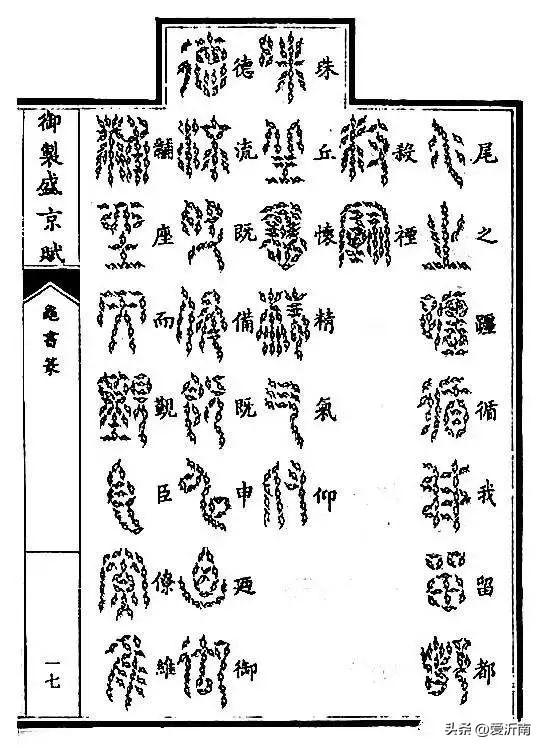 尾之循我留都
殺禋
珠丘懷精氣仰
德流既備既申廼御
黼座而覲臣僚維
御製盛京賦
龜書篆
一七
头条 @爱沂南